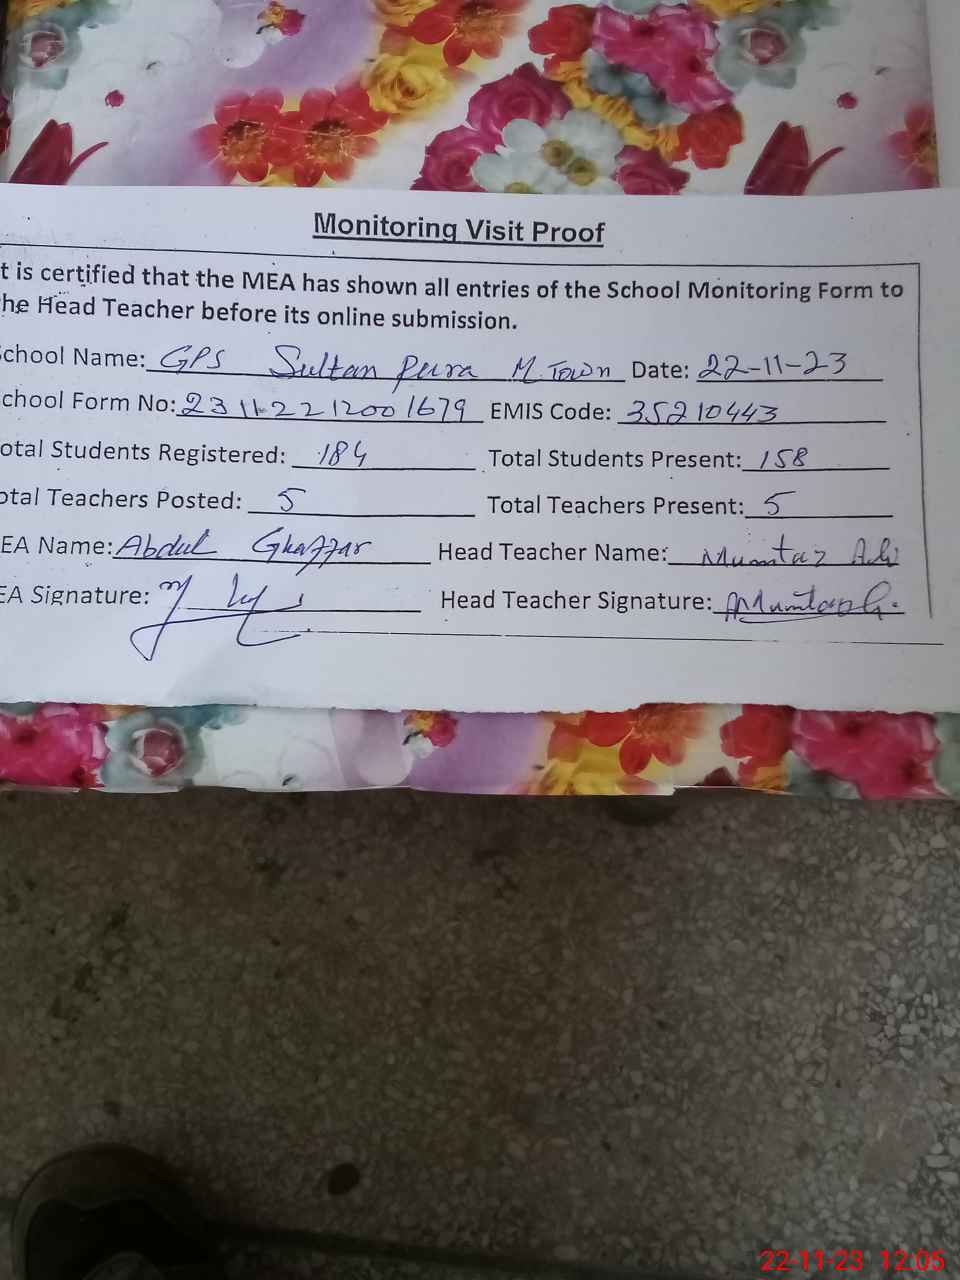 Monitoring Visit Proof
t is certified that the MEA has shown all entries of the School Monitoring Form to
he Head Teacher before its online submission.
chool Name: GPS Sultan Pura M. Town Date: 22-11-23
chool Form No: 231122121001679 EMIS Code: 35210443
otal Students Registered: 184 Total Students Present: 158
otal Teachers Posted: 5 Total Teachers Present: 5
EA Name: Abdul Ghaffar Head Teacher Name: Mumtaz Ali
EA Signature: Head Teacher Signature:
22-11-23 12:05